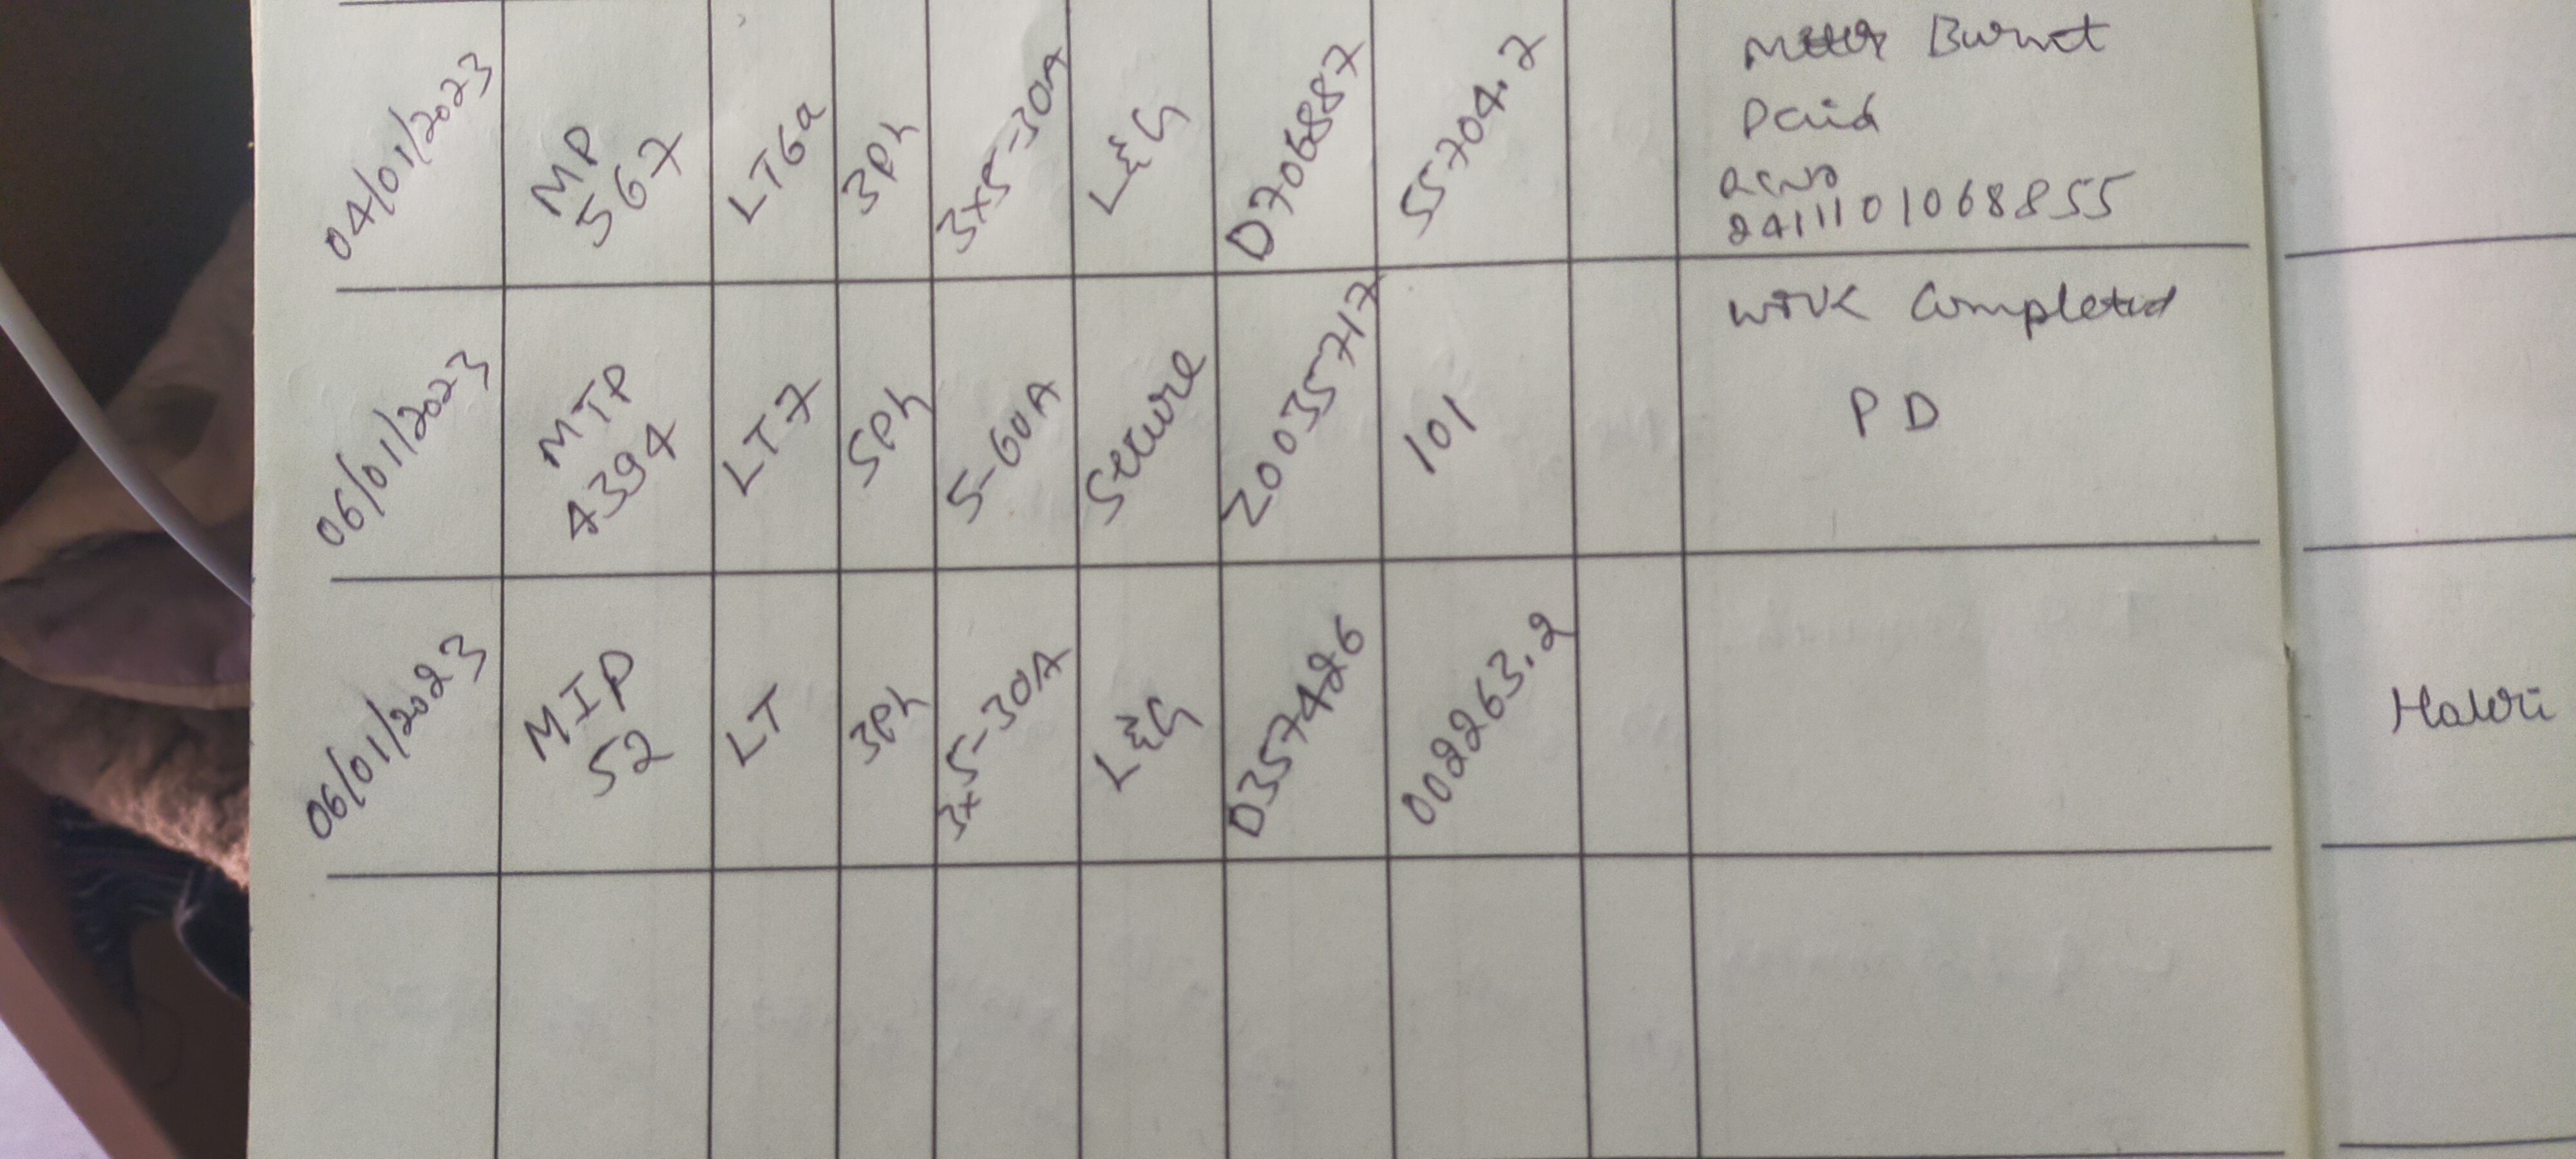 04/01/2023
MP
567
LT6a
3Ph
3x5-30A
L&G
D706887
55704.7
Meter Burnt
Paid
RCNO
24111101068855
06/01/2023
MTP
4394
LT7
SPh
5-60A
Secure
Z0035717
101
Work Completed
PD
06/01/2023
MIP
52
LT
3Ph
3x5-30A
L&G
D357426
002263.2